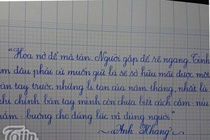 "Hoa nở để mà tàn. Người gặp để rẽ ngang. Tình
âm dẫu phải cứ muốn giữ là sẽ sở hữu mãi được một
bàn tay trước những lí tan của năm tháng, nhất là
khi chính bàn tay mình còn chưa biết cách cầm - níu
- nắm - buông cho đúng lúc và đúng người"
Anh Khang